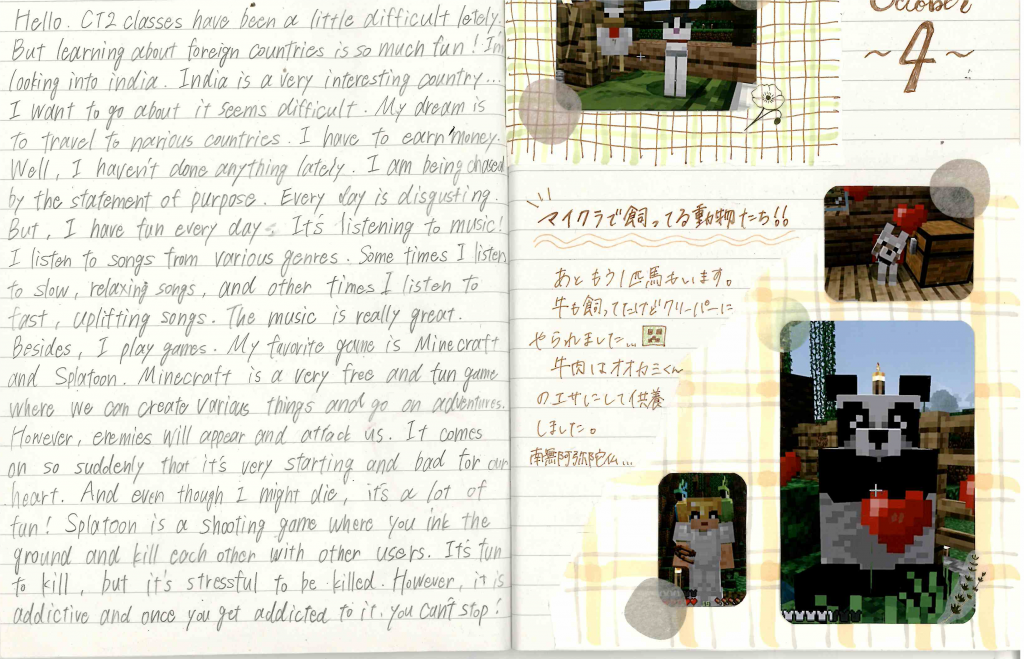 Hello. CT2 classes have been a little difficult lately.
But learning about foreign countries is so much fun! I'm
looking into india. India is a very interesting country...
I want to go about it seems difficult. My dream is
to travel to narious countries. I have to earn money.
Well, I haven't done anything lately. I am being chased
by the statement of purpose. Every day is disgusting.
But, I have fun every day. It's listening to music!
I listen to songs from various genres. Some times I listen
to slow, relaxing songs, and other times I listen to
fast, uplifting songs. The music is really great.
Besides, I play games. My favorite game is Minecraft
and Splatoon. Minecraft is a very free and fun game
where we can create various things and go on adventures.
However, enemies will appear and attack us. It comes
on so suddenly that it's very starting and bad for our
heart. And even though I might die, it's a lot of
fun! Splatoon is a shooting game where you ink the
ground and kill each other with other users. It's fun
to kill, but it's stressful to be killed. However, it is
addictive and once you get addicted to it, you can't stop!
October
~4~
マイクラで飼ってる動物たち!!
あともう1匹馬もいます。
牛も飼ってたけどクリーパーに
やられました...
牛肉はオオカミくん
のエサにして供養
しました。
南無阿弥陀仏...